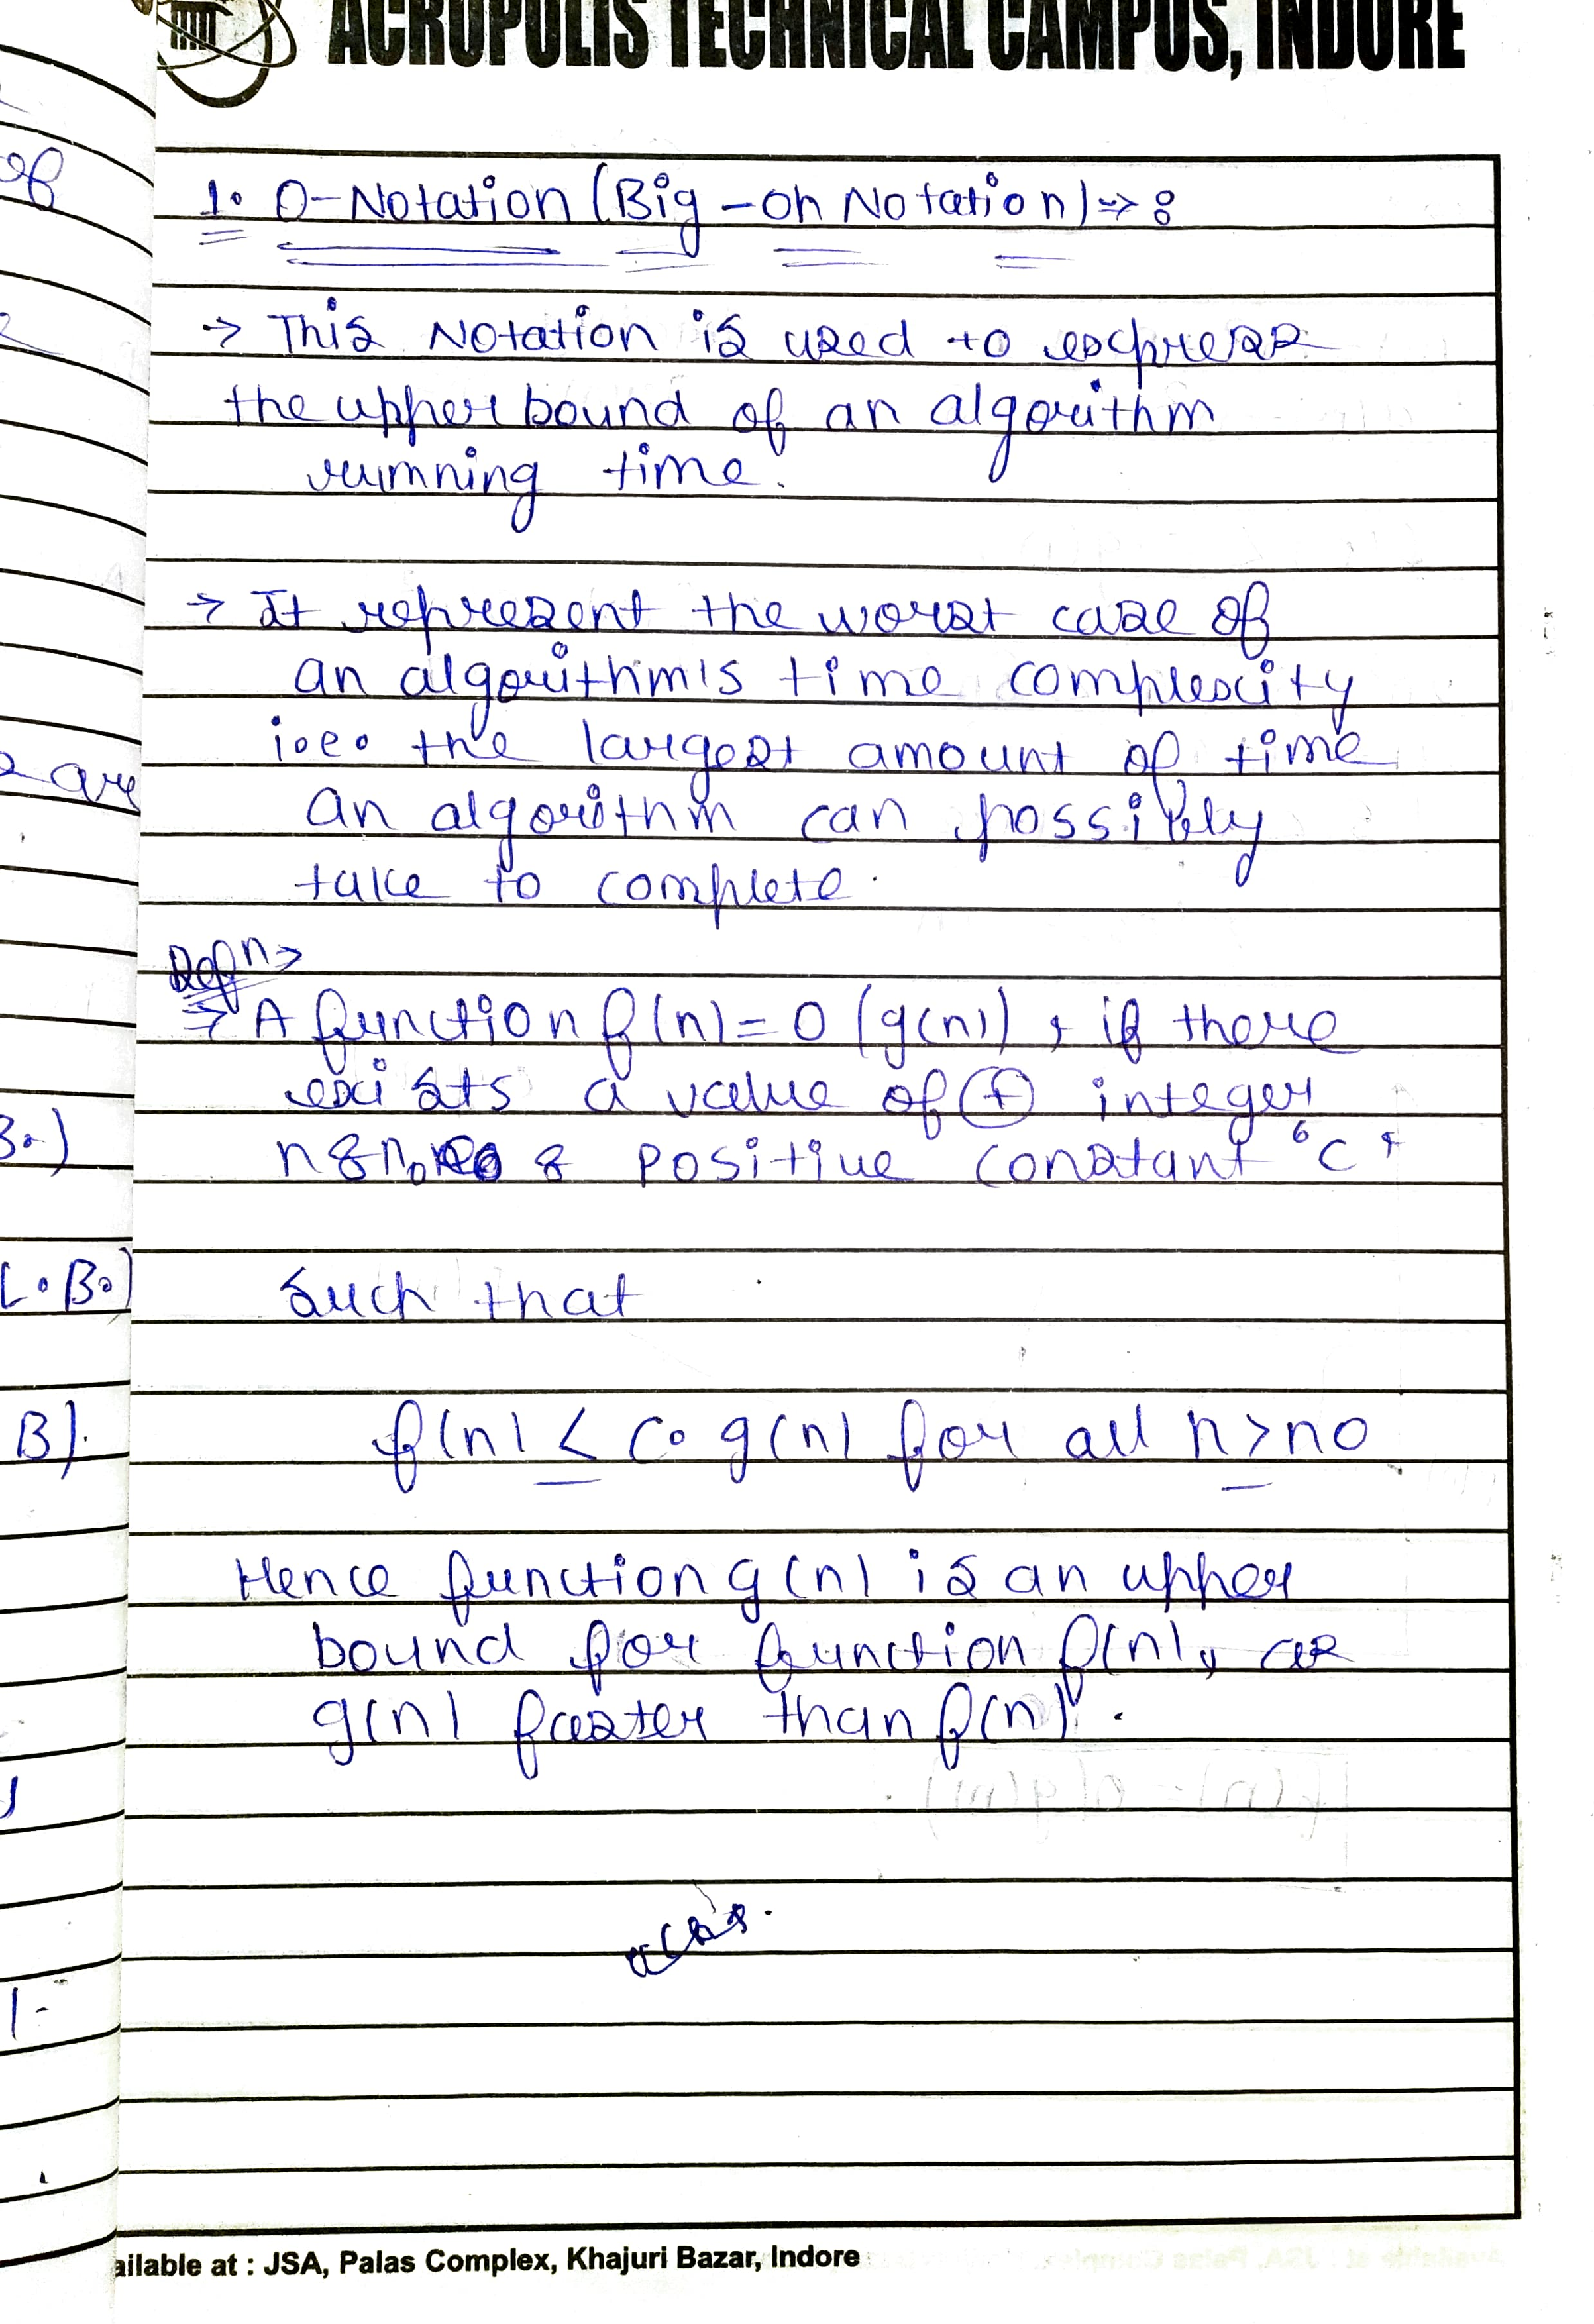 ACROPOLIS TECHNICAL CAMPUS, INDORE
1. O-Notation (Big-oh Notation) → :
→ This Notation is used to express
the upper bound of an algorithm
running time.
→ It represent the worst case of
an algorithm's time complexity
i.e. the largest amount of time
an algorithm can possibly
take to complete.
Defn>
→ A function f(n) = O (g(n)), if there
exists a value of (+) integer
n & no & positive constant 'c'
such that
f(n) ≤ c. g(n) for all n ≥ no
Hence function g(n) is an upper
bound for function f(n), as
g(n) faster than f(n).
of
are
B.)
L.B.)
B).
ailable at : JSA, Palas Complex, Khajuri Bazar, Indore